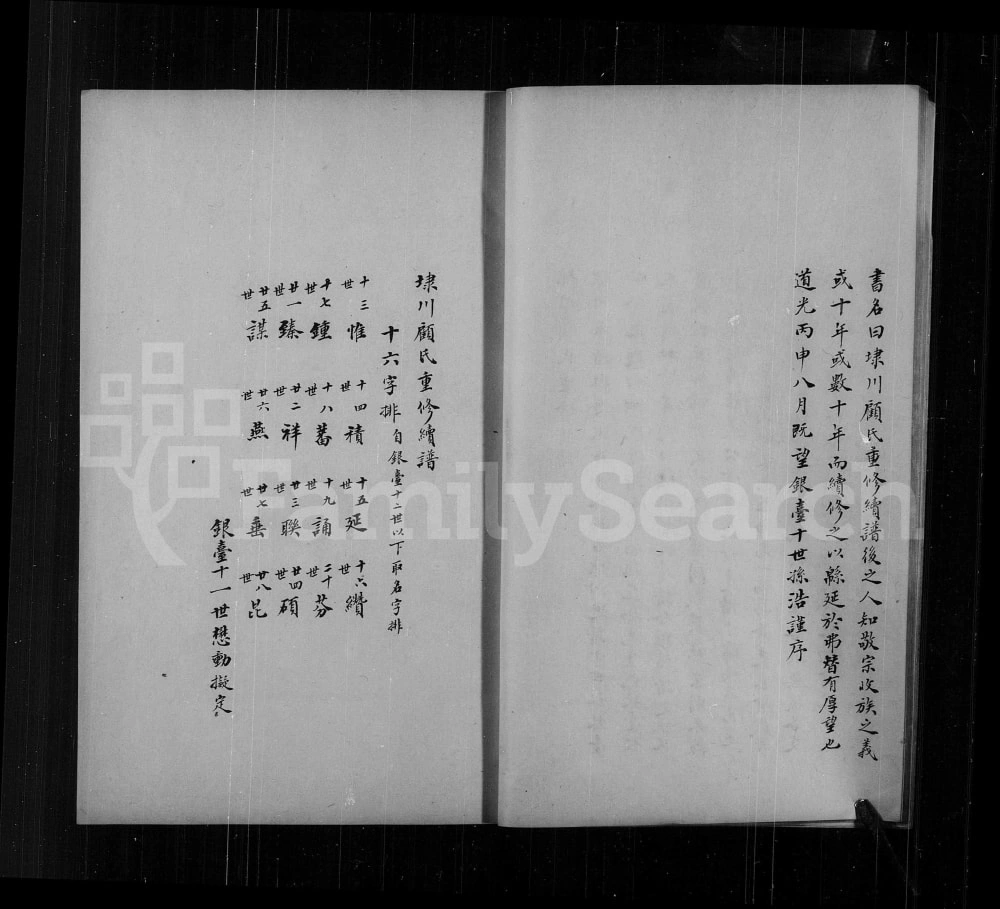 書名曰埭川顧氏重修續譜後之人知敬宗收族之義
或十年或數十年而續修之以緜延於弗替有厚望也
道光丙申八月既望銀臺十世孫浩謹序
埭川顧氏重修續譜
十六字排 自銀臺十二世以下取名字排
十三世 惟 十四世 積 十五世 延 十六世 纘
十七世 鍾 十八世 蕃 十九世 誦 二十世 芬
廿一世 臻 廿二世 祥 廿三世 聯 廿四世 碩
廿五世 謀 廿六世 燕 廿七世 垂 廿八世 昆
銀臺十一世懋勳擬定
FamilySearch